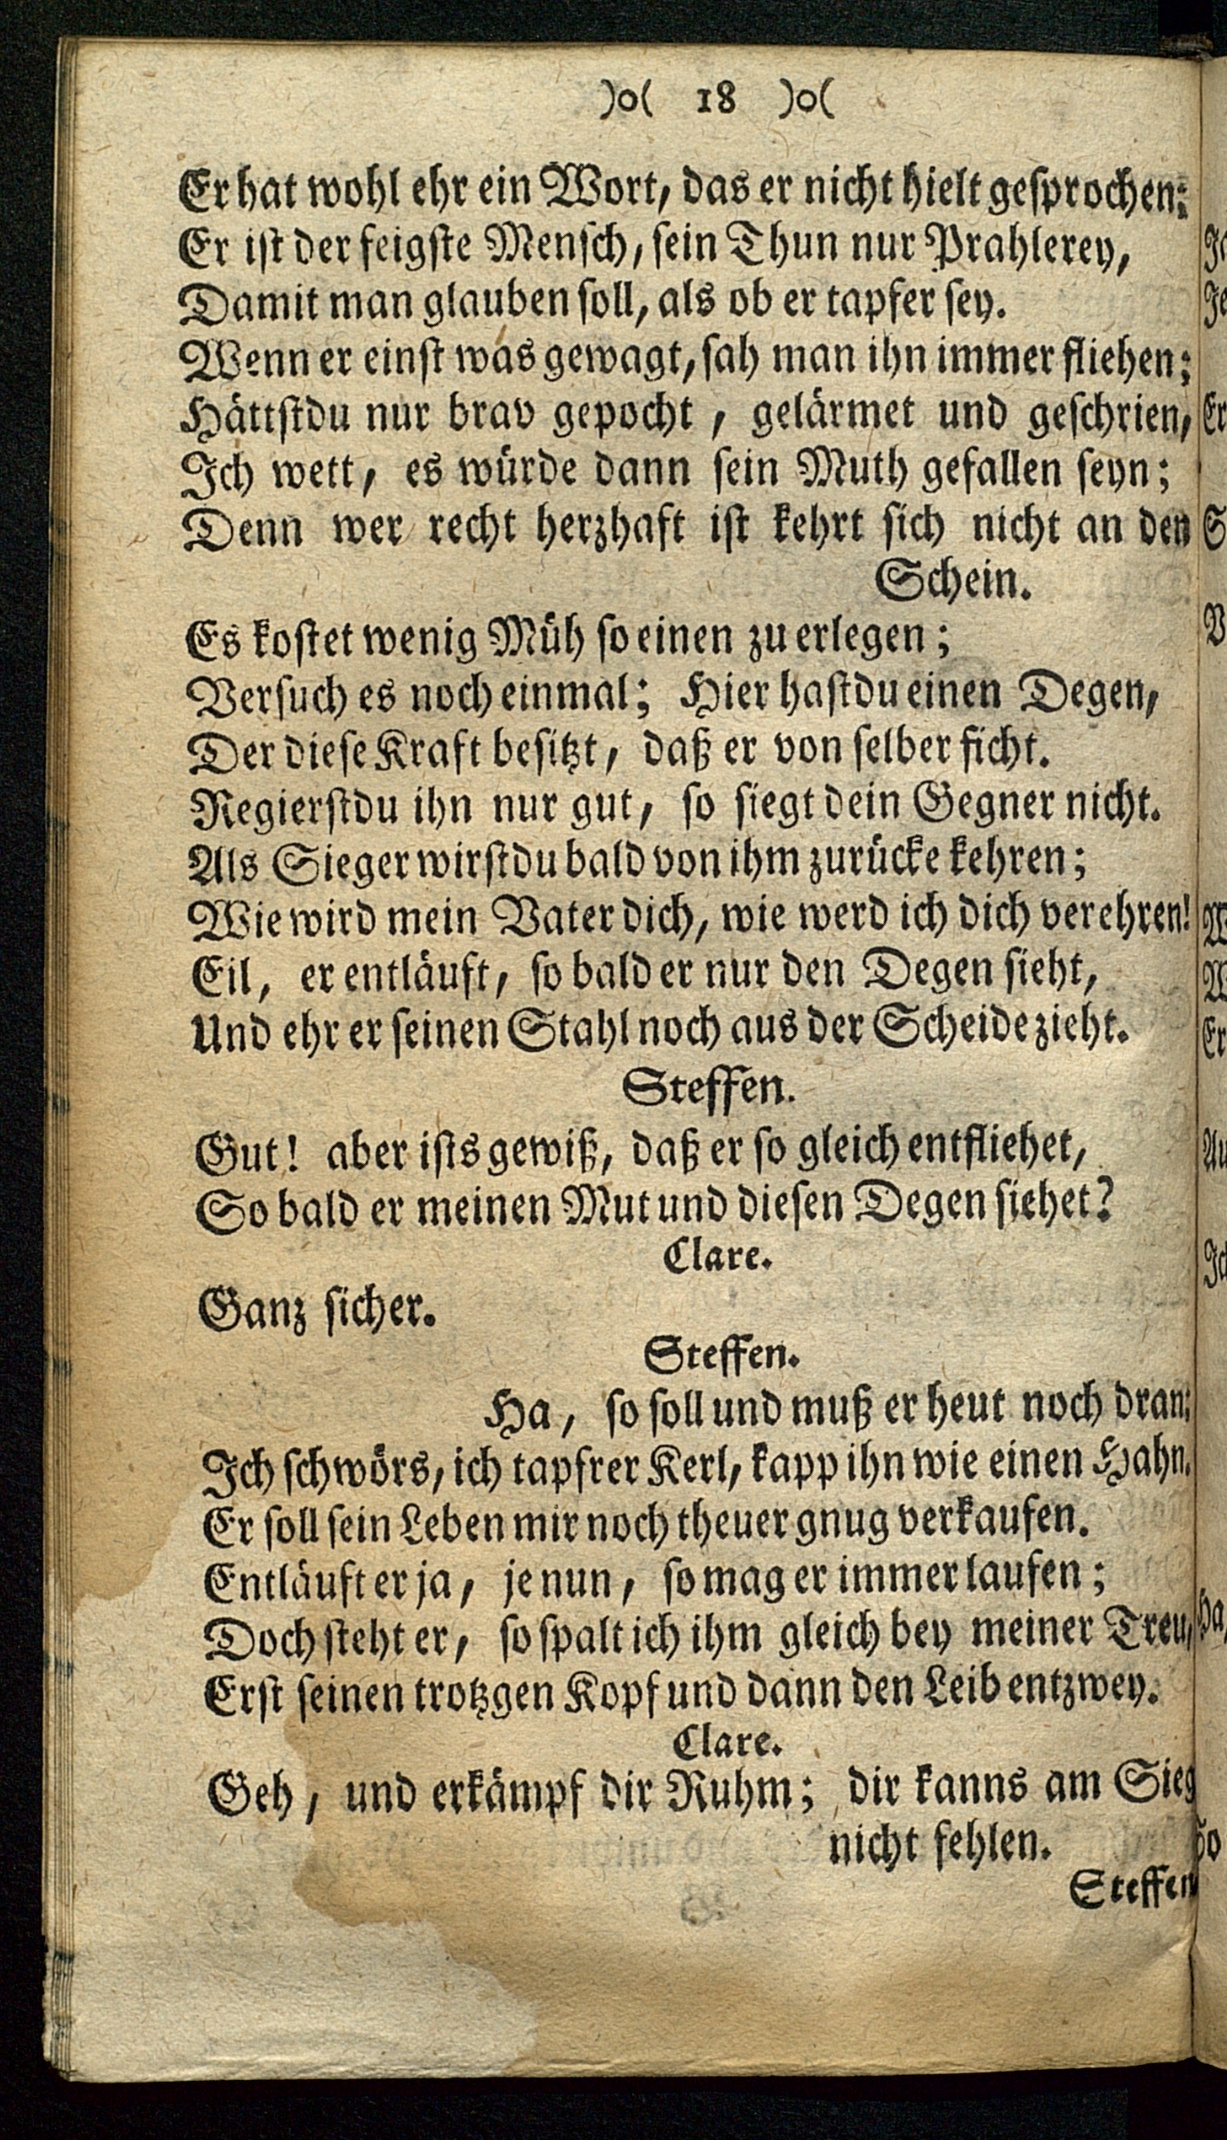 )o( 18 )o(
Er hat wohl ehr ein Wort, das er nicht hielt gesprochen:
Er ist der feigste Mensch, sein Thun nur Prahlerey,
Damit man glauben soll, als ob er tapfer sey.
Wenn er einst was gewagt, sah man ihn immer fliehen;
Hättstdu nur brav gepocht, gelärmet und geschrien,
Ich wett, es würde dann sein Muth gefallen seyn;
Denn wer recht herzhaft ist kehrt sich nicht an den
Schein.
Es kostet wenig Müh so einen zu erlegen;
Versuch es noch einmal; Hier hastdu einen Degen,
Der diese Kraft besitzt, daß er von selber ficht.
Regierstdu ihn nur gut, so siegt dein Gegner nicht.
Als Sieger wirstdu bald von ihm zurücke kehren;
Wie wird mein Vater dich, wie werd ich dich verehren!
Eil, er entläuft, so bald er nur den Degen sieht,
Und ehr er seinen Stahl noch aus der Scheide zieht.
Steffen.
Gut! aber ists gewiß, daß er so gleich entfliehet,
So bald er meinen Mut und diesen Degen siehet?
Clare.
Ganz sicher.
Steffen.
Ha, so soll und muß er heut noch dran;
Ich schwörs, ich tapfrer Kerl, kapp ihn wie einen Hahn.
Er soll sein Leben mir noch theuer gnug verkaufen.
Entläuft er ja, je nun, so mag er immer laufen;
Doch steht er, so spalt ich ihm gleich bey meiner Treu,
Erst seinen trotzgen Kopf und dann den Leib entzwey.
Clare.
Geh, und erkämpf dir Ruhm; dir kanns am Sieg
nicht fehlen.
Steffen